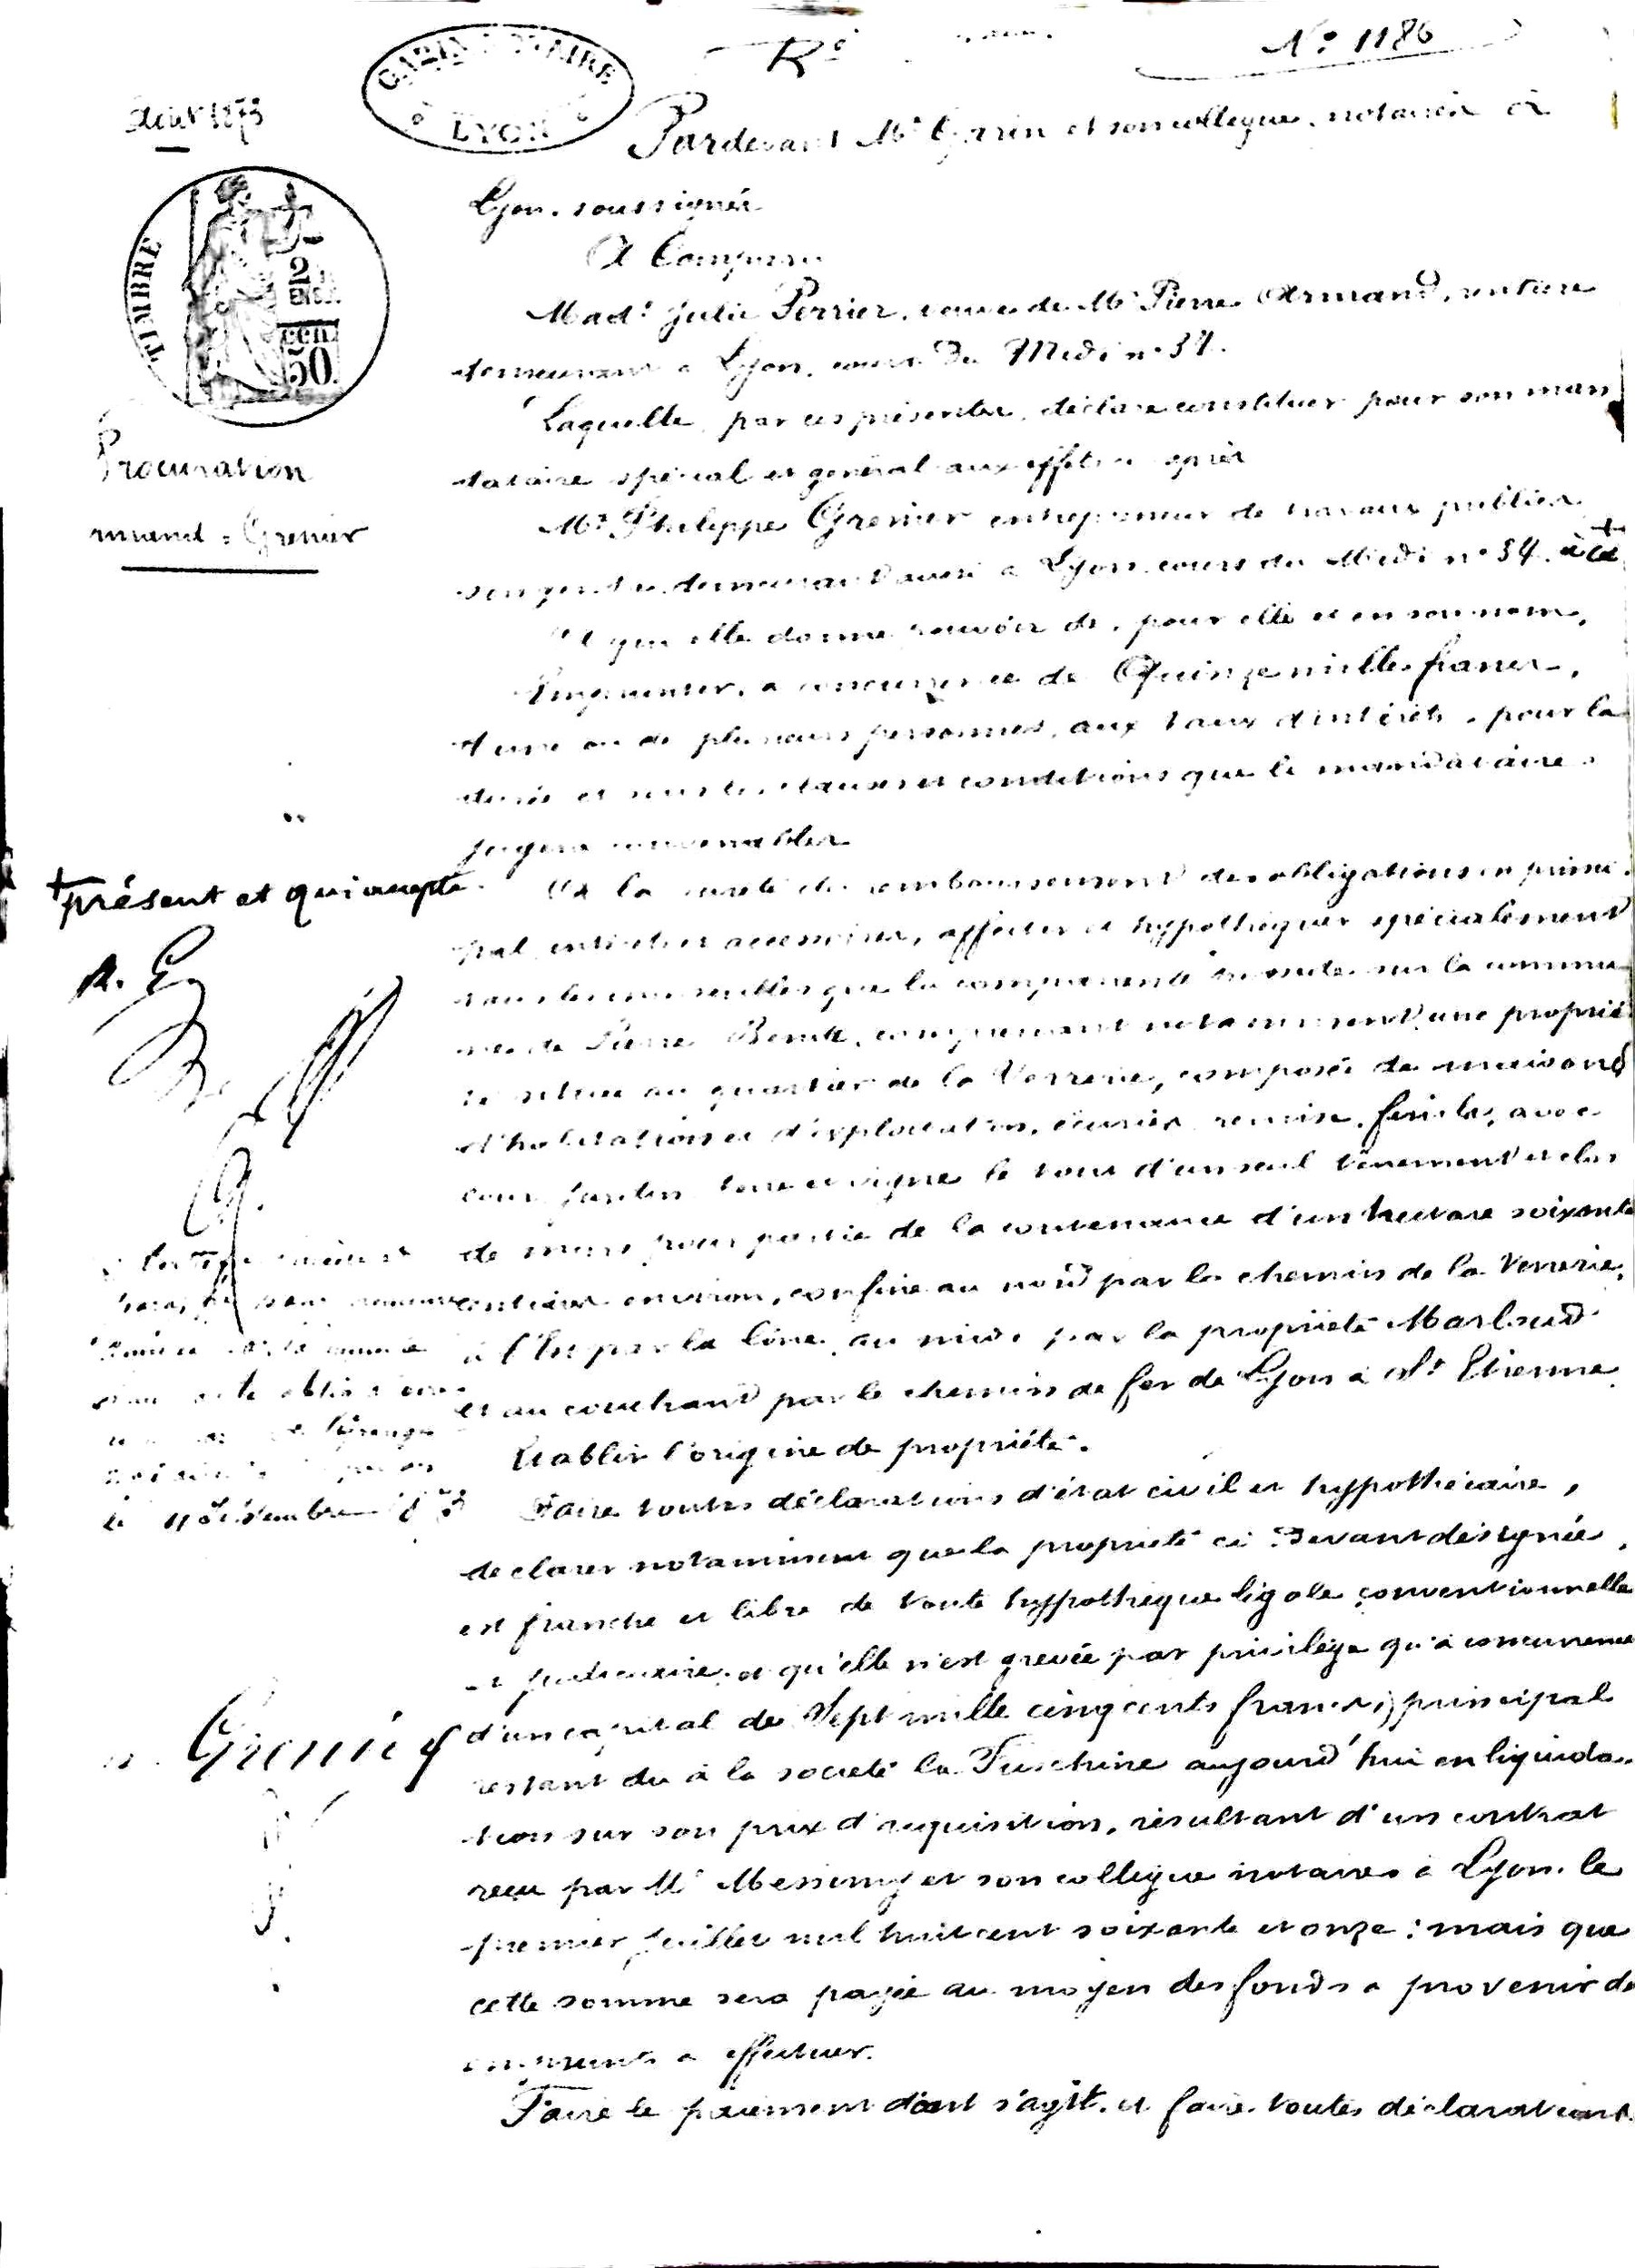 N° 1186
LYON
Pardevant Me Garin et son collègue, notaires à
Août 1873
Lyon, soussignés
A Comparu
TIMBRE
2
50
Made Julie Perrier, veuve de Mr Pierre Armand, rentière
demeurant à Lyon, cours du Midi n° 34.
Laquelle, par ces présentes, déclare constituer pour son man
dataire spécial et général aux effets ci après
Procuration
Mr Philippe Grenier entrepreneur de travaux publics
Grenier
son gendre demeurant aussi à Lyon cours du Midi n° 34. à ce +
Et qui elle donne pouvoir de, pour elle et en son nom,
Emprunter, à concurrence de Quinze mille francs,
d'une ou de plusieurs personnes, aux taux d'intérêts, pour la
durée et sous les clauses et conditions que le mandataire
jugera convenables
+ présent et qui accepte
A la sureté du remboursement des obligations en princi
pal intérêts et accessoires, affecter et hypothéquer spécialement
tous les immeubles que la comparante possède sur la commu
ne de Pierre Bénite, comprenant notamment une proprié
té située au quartier de la Verrerie, composée de maisons
d'habitation et d'exploitation, écuries, remise, fenils, avec
cour jardin terre et vigne le tout d'un seul tènement et clos
de murs pour partie de la contenance d'un hectare soixante
centiares environ, confiné au nord par le chemin de la Verrerie,
à l'Est par la lône, au midi par la propriété Marbaud
et au couchant par le chemin de fer de Lyon à St Etienne
Etablir l'origine de propriété.
Faire toutes déclarations d'état civil et hypothécaire,
déclarer notamment que la propriété ci devant désignée,
est franche et libre de toute hypothèque légale conventionnelle
et judiciaire, et qu'elle n'est grevée par privilège qu'à concurrence
d'un capital de Sept mille cinq cents francs, principal
Grenier
restant du à la société la Fuschine aujourd'hui en liquida-
tion sur son prix d'acquisition, résultant d'un contrat
reçu par Me Messimy et son collègue notaires à Lyon le
premier juillet mil huit cent soixante et onze: mais que
cette somme sera payée au moyen des fonds à provenir de
emprunts à effectuer.
Faire le paiement dont s'agit, et faire toutes déclarations